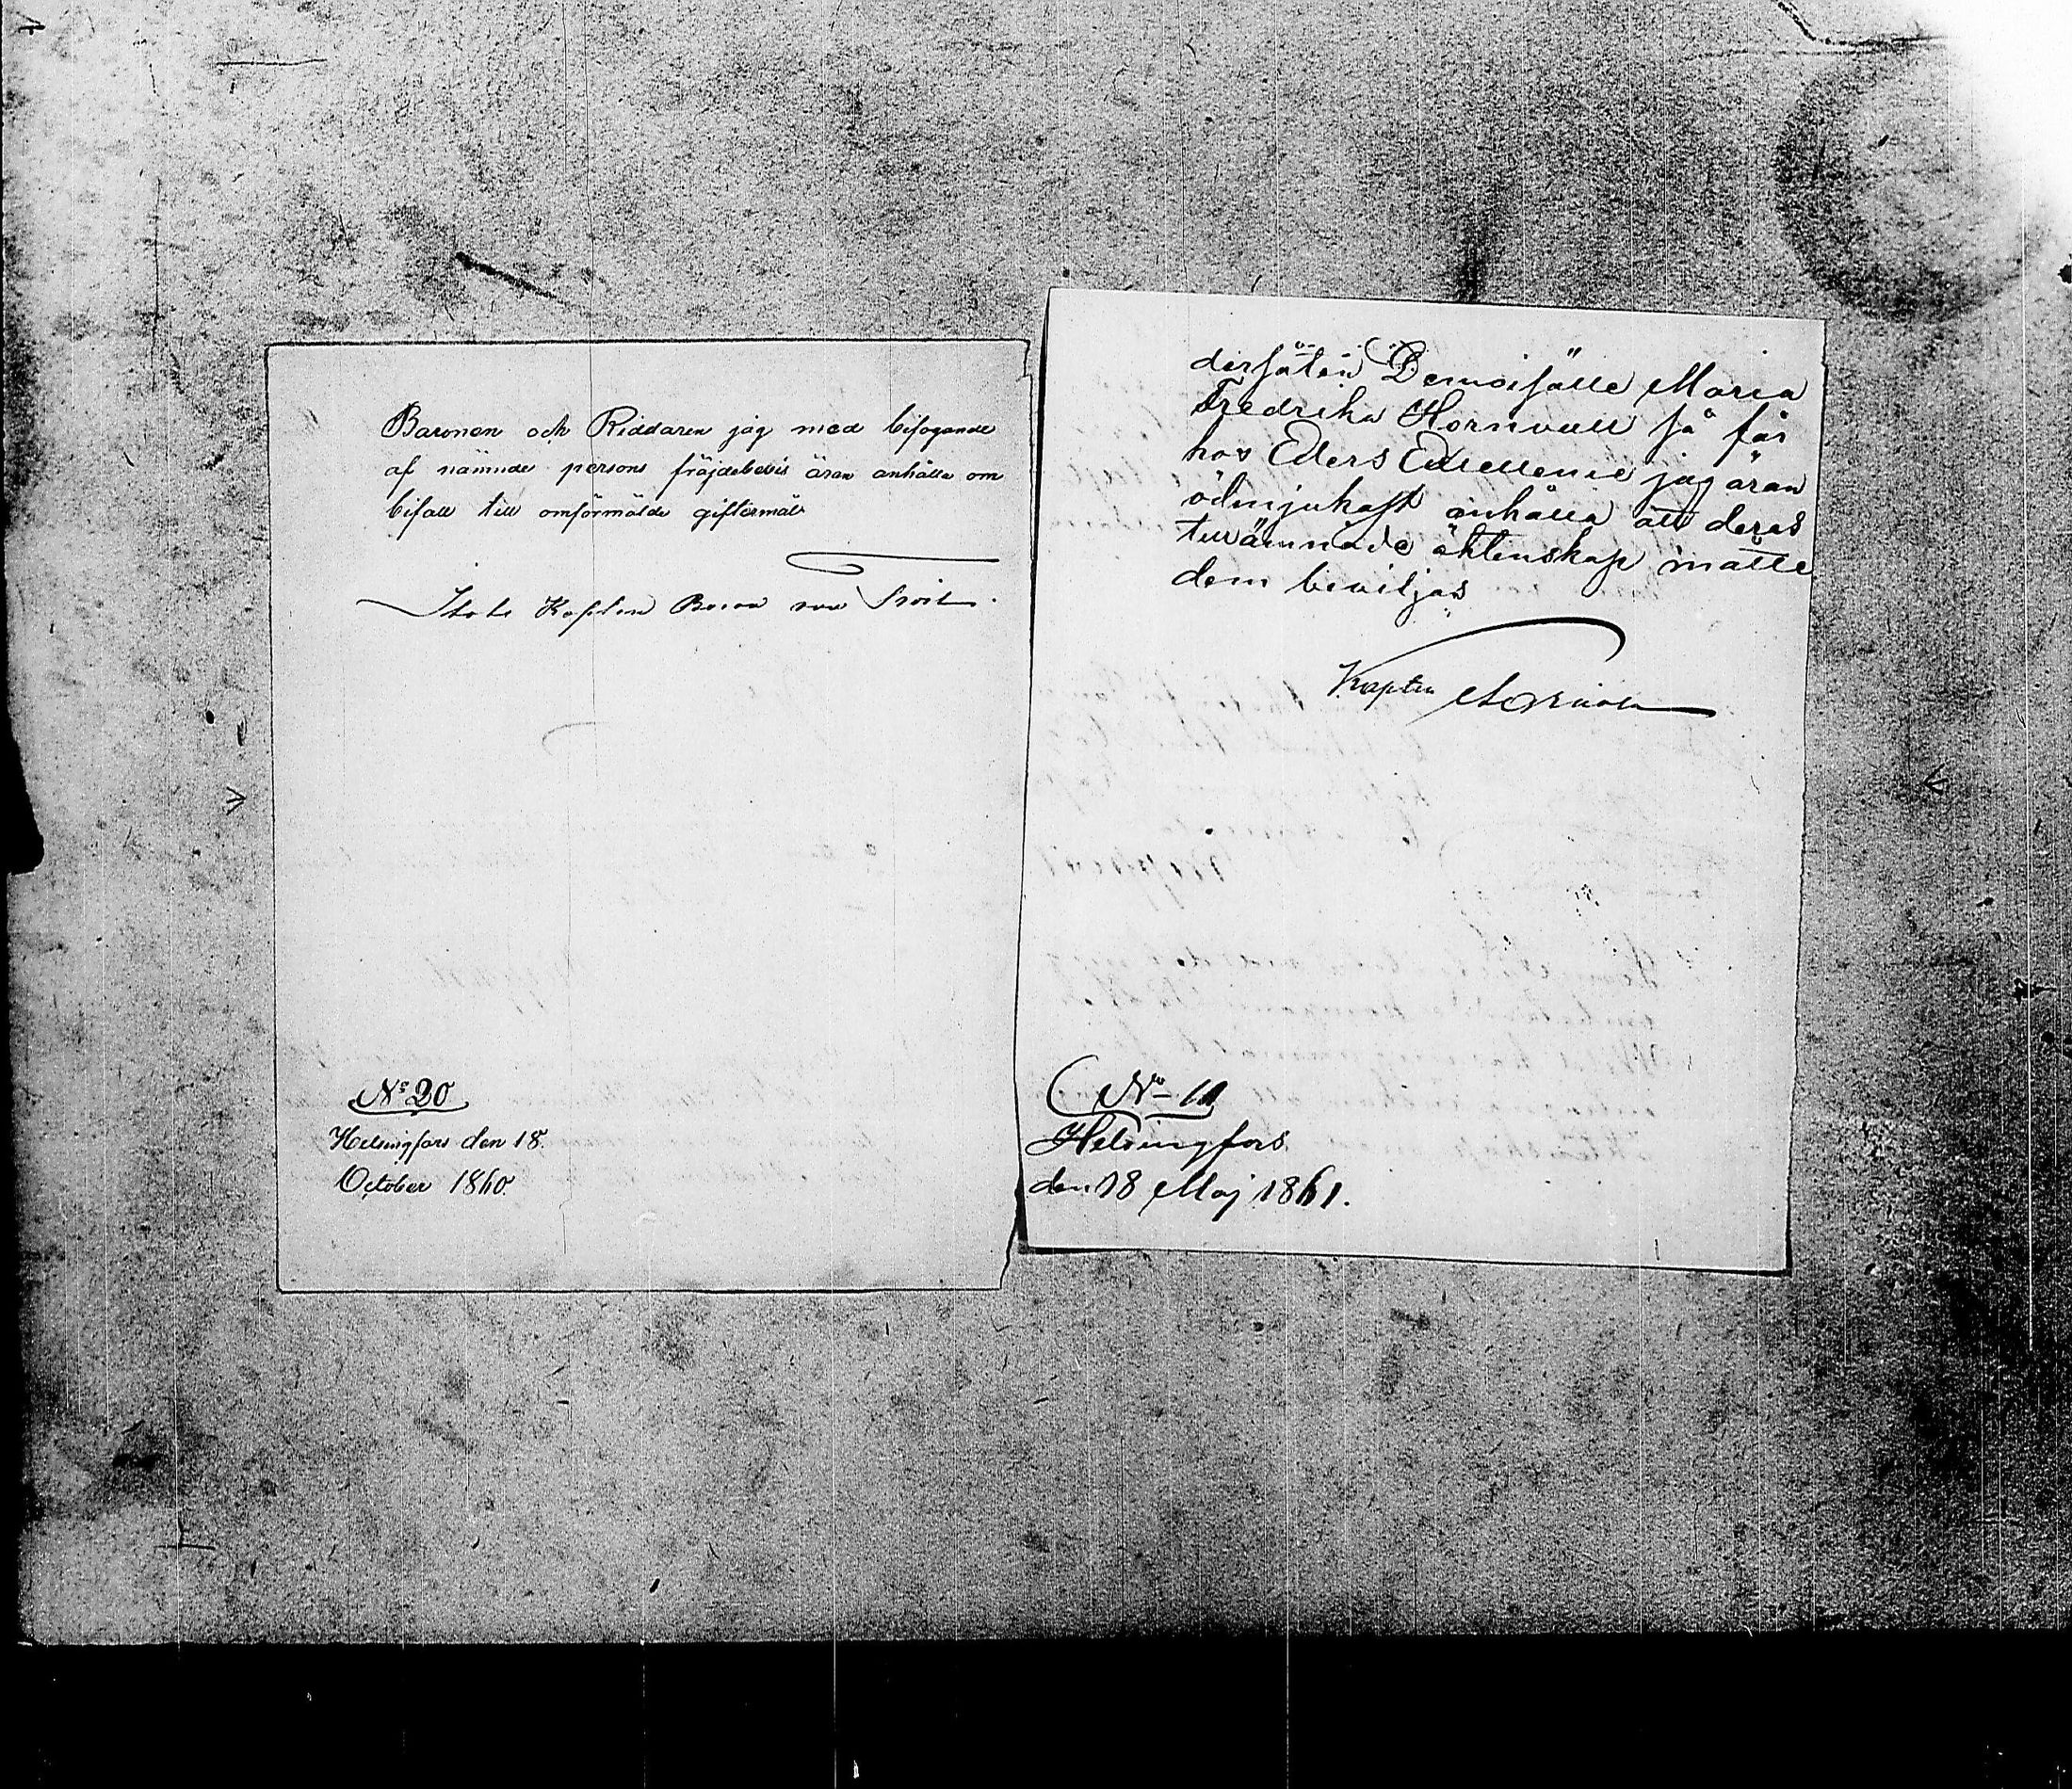 Baronen och Riddaren jag med bifogande
af nämnde persons fräjdebevis äran anhålla om
bifall till omförmälde giftermål
Kapten
No 20
Helsingfors den 18
October 1860.
Demoiselle Maria
Fredrika Hornvall så får
hos Eders Excellence jag äran
ödmjukast anhålla att deras
tillämnade äktenskap måtte
dem beviljas
Kapten
No 11
Helsingfors
den 18 Maj 1861.